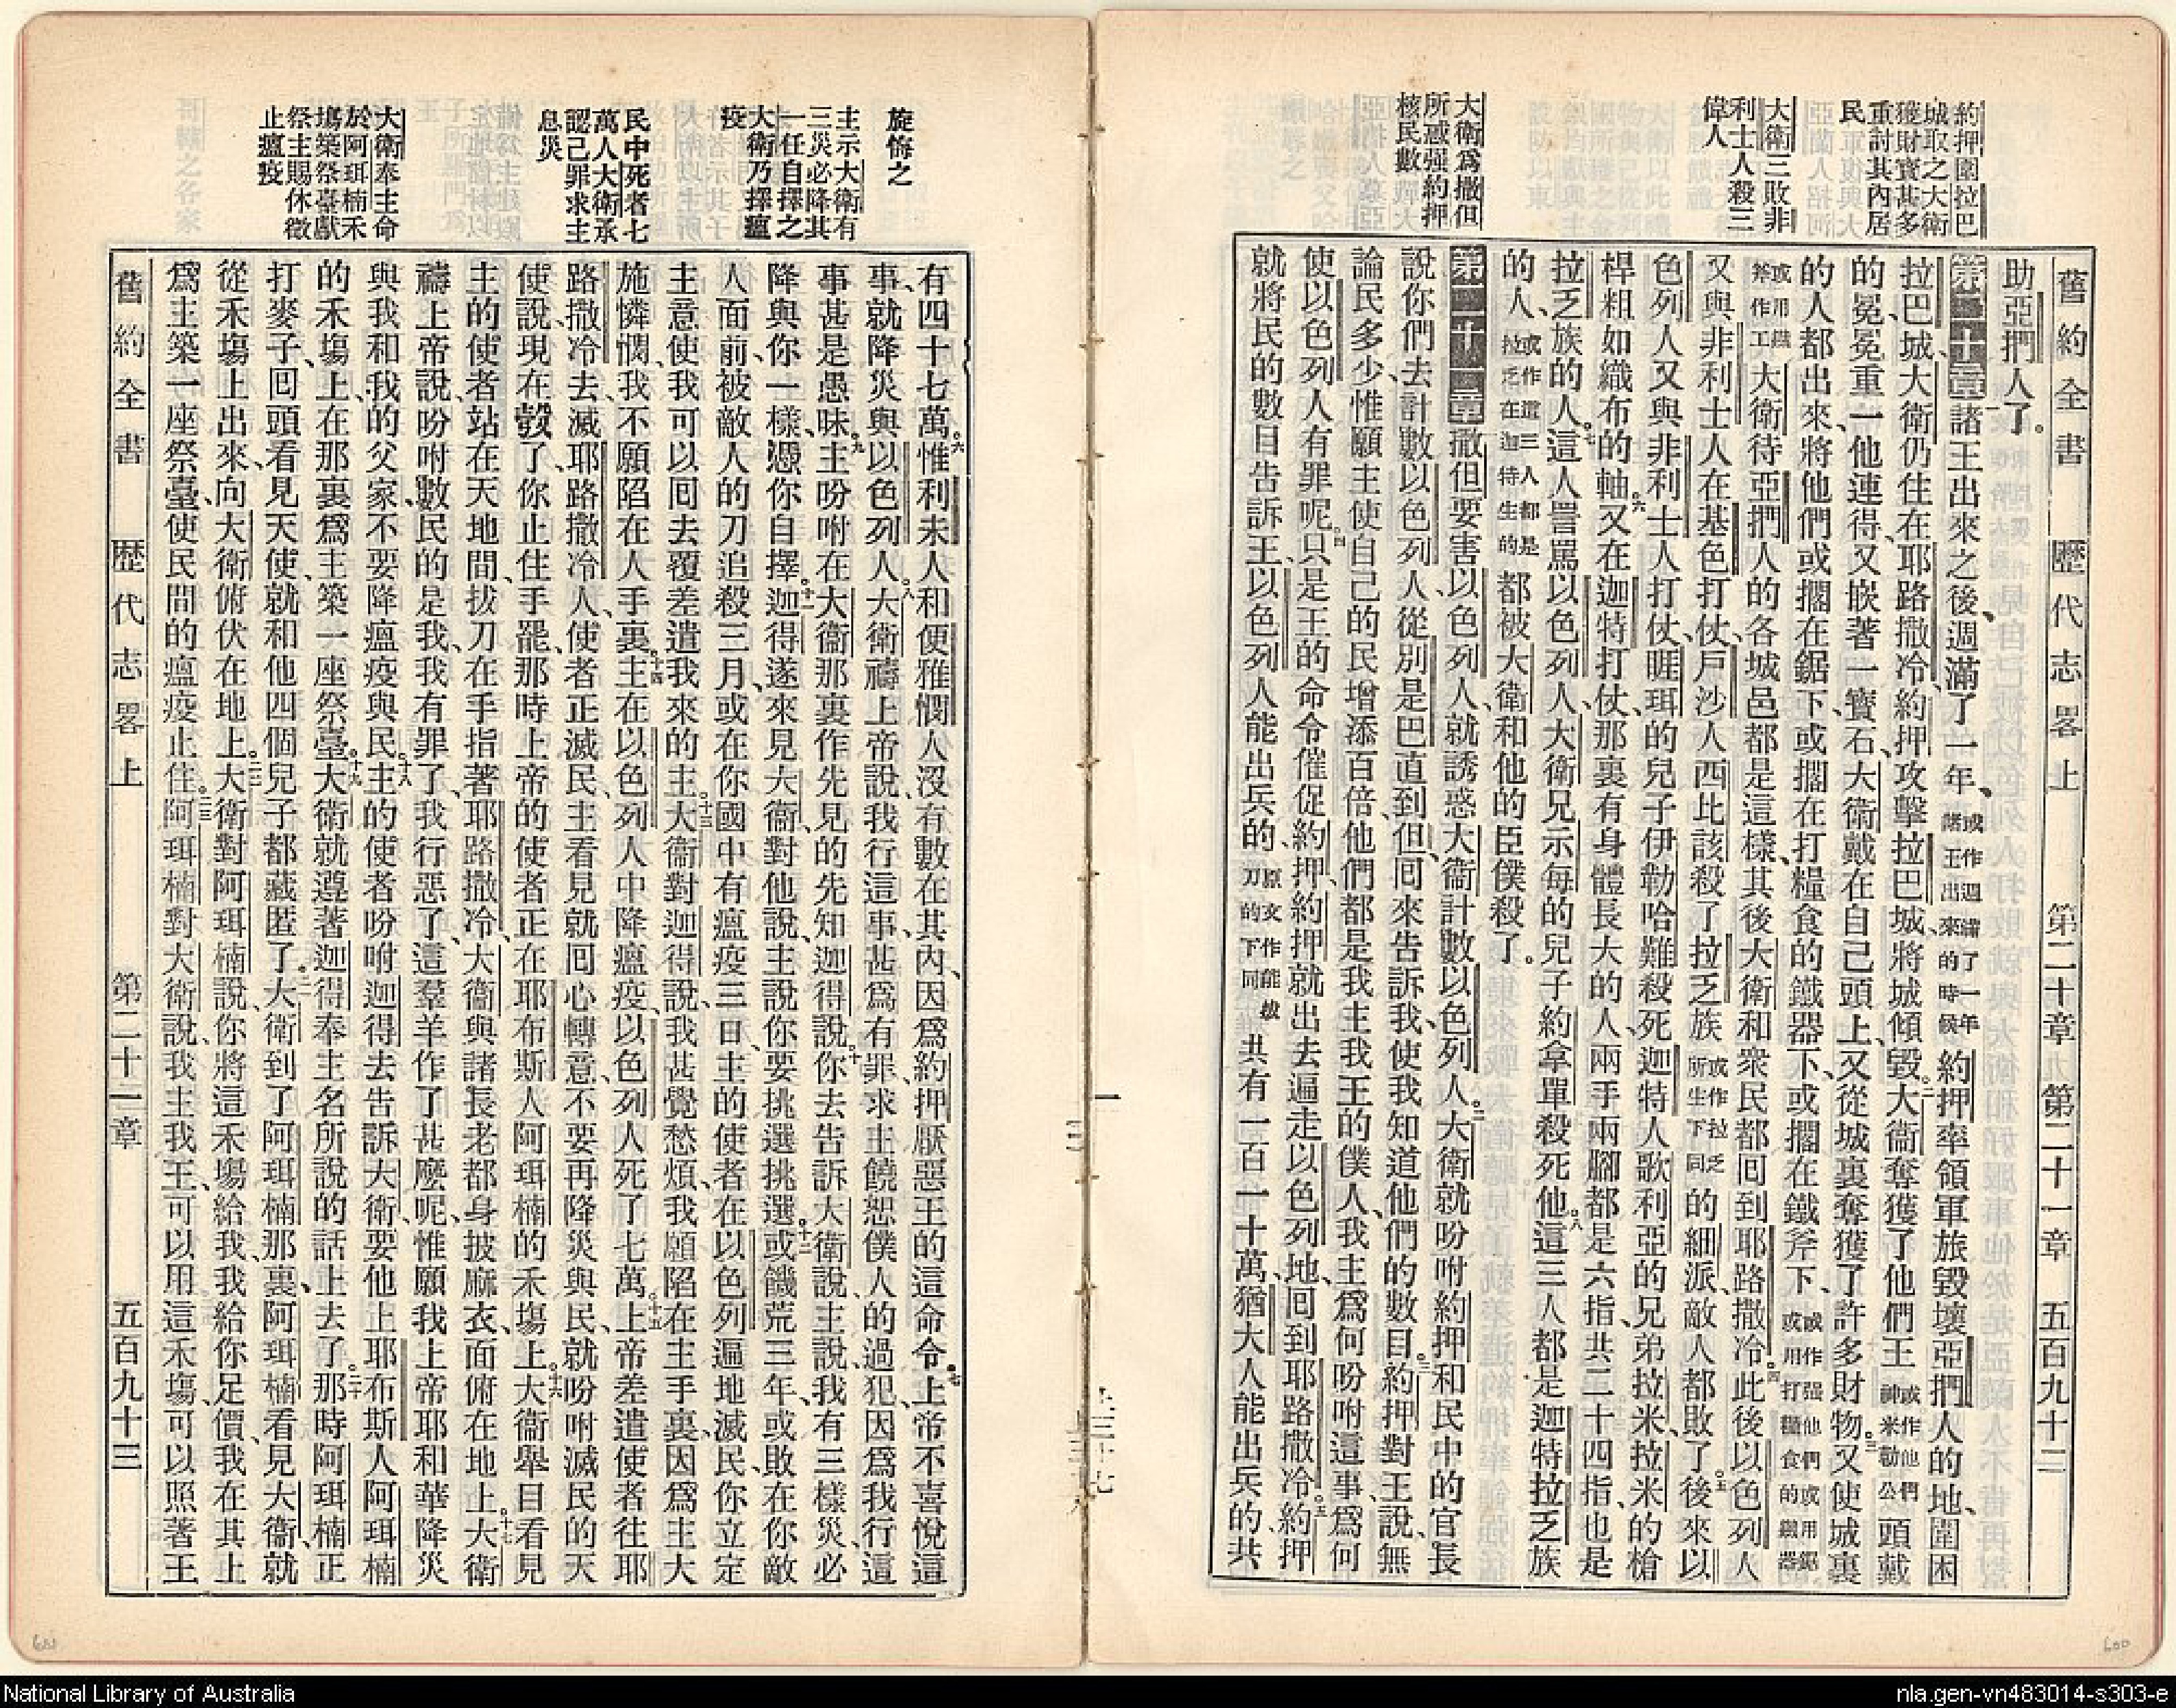 約押圍拉巴
城取之大衛
獲財寶甚多
重討其內居
民
大衛三敗非
利士人殺三
偉人
大衛爲撒但
所惑强約押
核民數
舊約全書 歷代志畧上 第二十章 第二十一章 五百九十二
助亞捫人了。
第二十章 一諸王出來之後、週滿了一年、或作週滿了一年諸王出來的時候約押率領軍旅毀壞亞捫人的地、圍困
拉巴城、大衛仍住在耶路撒冷、約押攻擊拉巴城、將城傾毀。二大衛奪獲了他們王或作他們神米勒公頭戴
的冕、冕重一他連得、又嵌著一寶石、大衛戴在自己頭上、又從城裏奪獲了許多財物。三又使城裏
的人都出來、將他們或擱在鋸下、或擱在打糧食的鐵器下、或擱在鐵斧下、或作强他們或用鋸或用打糧食的鐵器
或用鐵斧作工大衛待亞捫人的各城邑都是這樣、其後大衛和衆民都回到耶路撒冷。四此後以色列人
又與非利士人在基色打仗、戶沙人西比該殺了拉乏族或作拉乏所生下同的細派、敵人都敗了。五後來以
色列人又與非利士人打仗、睚珥的兒子伊勒哈難殺死迦特人歌利亞的兄弟拉米、拉米的槍
桿粗如織布的軸。六又在迦特打仗、那裏有身體長大的人、兩手兩腳都是六指、共二十四指、也是
拉乏族的人。七這人詈罵以色列人、大衛兄示每的兒子約拿單殺死他。八這三人都是迦特拉乏族
的人、或作這三人都是拉乏在迦特生的都被大衛和他的臣僕殺了。
第二十一章 撒但要害以色列人、就誘惑大衛計數以色列人。二大衛就吩咐約押和民中的官長
說、你們去計數以色列人、從別是巴直到但、回來告訴我、使我知道他們的數目。三約押對王說、無
論民多少、惟願主使自己的民增添百倍、他們都是我主我王的僕人、我主爲何吩咐這事、爲何
使以色列人有罪呢。四只是王的命令催促約押、約押就出去、遍走以色列地、回到耶路撒冷。五約押
就將民的數目告訴王、以色列人能出兵的、原文作能拔刀的下同共有一百一十萬、猶大人能出兵的、共
旋悔之
主示大衛有
三災必降其
一任自擇之
大衛乃擇瘟
疫
民中死者七
萬人大衛承
認己罪求主
息災
大衛奉主命
於阿珥楠禾
塲築祭臺獻
祭主賜休徵
止瘟疫
有四十七萬。六惟利未人和便雅憫人沒有數在其內、因爲約押厭惡王的這命令。七上帝不喜悅這
事、就降災與以色列人。八大衛禱上帝說、我行這事、甚爲有罪、求主饒恕僕人的過犯、因爲我行這
事甚是愚昧。九主吩咐在大衛那裏作先見的先知迦得說、十你去告訴大衛說、主說、我有三樣災、必
降與你一樣、憑你自擇。十一迦得遂來見大衛、對他說、主說、你要挑選挑選。十二或饑荒三年、或敗在你敵
人面前、被敵人的刀追殺三月、或在你國中有瘟疫三日、主的使者在以色列遍地滅民、你立定
主意、使我可以囘去覆差遣我來的主。十三大衛對迦得說、我甚覺愁煩、我願陷在主手裏、因爲主大
施憐憫、我不願陷在人手裏。十四主在以色列人中降瘟疫、以色列人死了七萬。十五上帝差遣使者往耶
路撒冷去滅耶路撒冷人、使者正滅民、主看見就回心轉意、不要再降災與民、就吩咐滅民的天
使說、現在彀了、你止住手罷、那時上帝的使者正在耶布斯人阿珥楠的禾塲上。十六大衛舉目看見
主的使者站在天地間、拔刀在手指著耶路撒冷、大衛與諸長老都身披麻衣、面俯在地上。十七大衛
禱上帝說、吩咐數民的是我、我有罪了、我行惡了、這羣羊作了甚麼呢、惟願我上帝耶和華降災
與我和我的父家、不要降瘟疫與民。十八主的使者吩咐迦得去告訴大衛、要他上耶布斯人阿珥楠
的禾塲上、在那裏爲主築一座祭臺。十九大衛就遵著迦得奉主名所說的話上去了。二十那時阿珥楠正
打麥子、回頭看見天使、就和他四個兒子都藏匿了。二一大衛到了阿珥楠那裏、阿珥楠看見大衛、就
從禾塲上出來、向大衛俯伏在地上。二二大衛對阿珥楠說、你將這禾塲給我、我給你足價、我在其上
爲主築一座祭臺、使民間的瘟疫止住。二三阿珥楠對大衛說、我主我王、可以用這禾塲、可以照著王
舊約全書 歷代志畧上 第二十一章 五百九十三
601
600
National Library of Australia
nla.gen-vn483014-s303-e